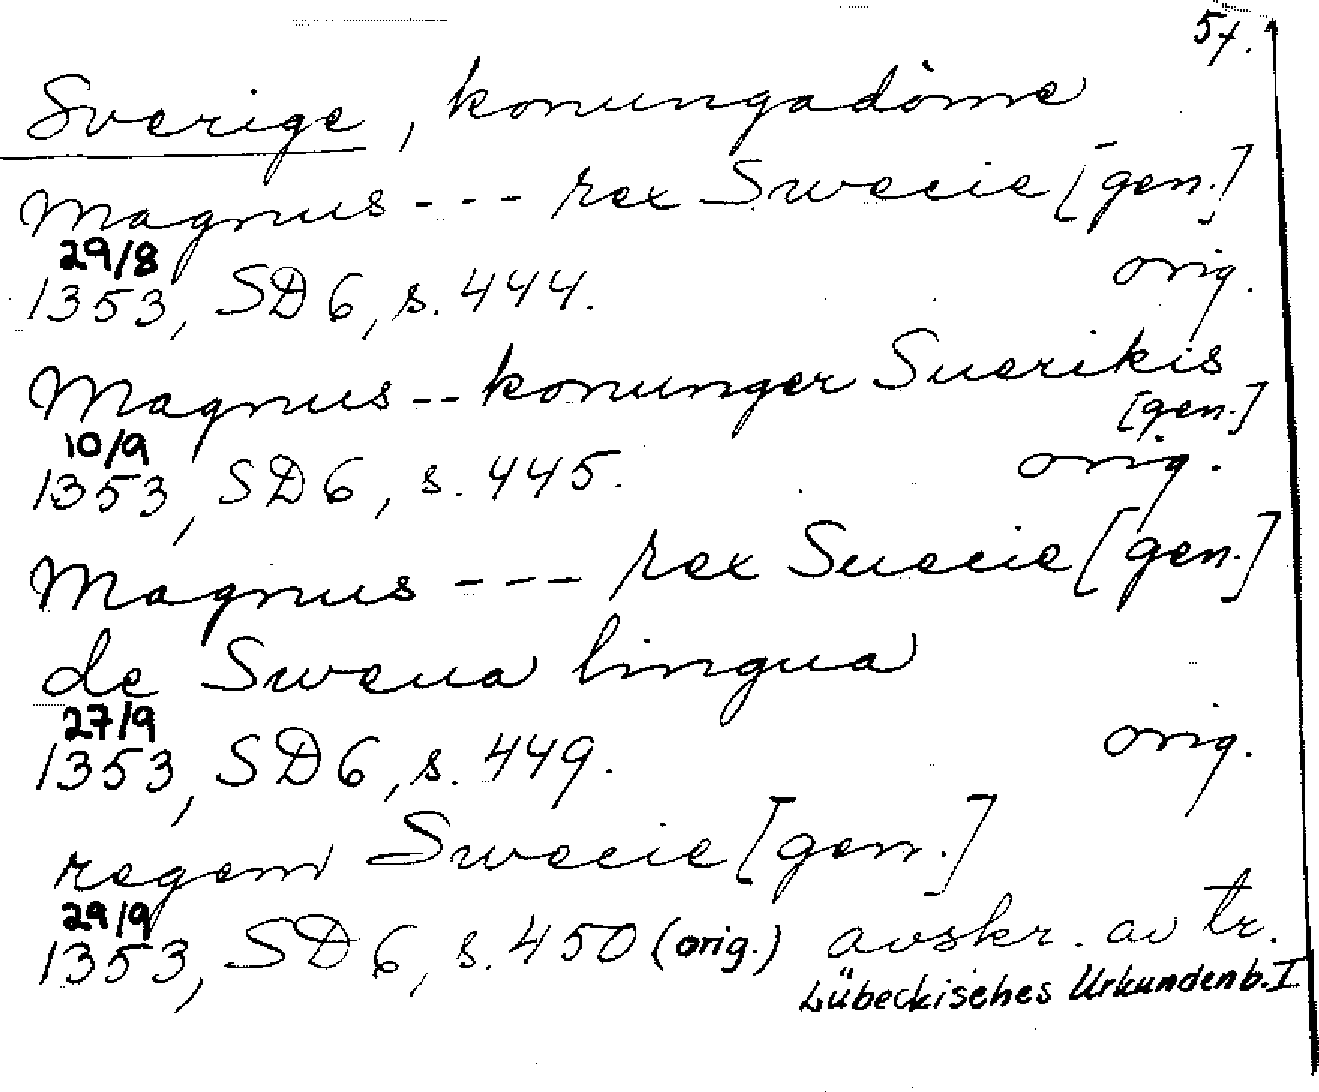 57.
Sverige, konungadöme
Magnus --- rex Swecie [gen.]
29/8
1353, SD 6, s. 444. orig.
Magnus -- konunger Suerikis
[gen.]
10/9
1353, SD 6, s. 445. orig.
Magnus --- rex Suecie [gen.]
de Sweua lingua
27/9
1353, SD 6, s. 449. orig.
regem Swecie [gen.]
29/9
1353, SD 6, s. 450 (orig.) avskr. av tr.
Lübeckisches Urkundenb. I